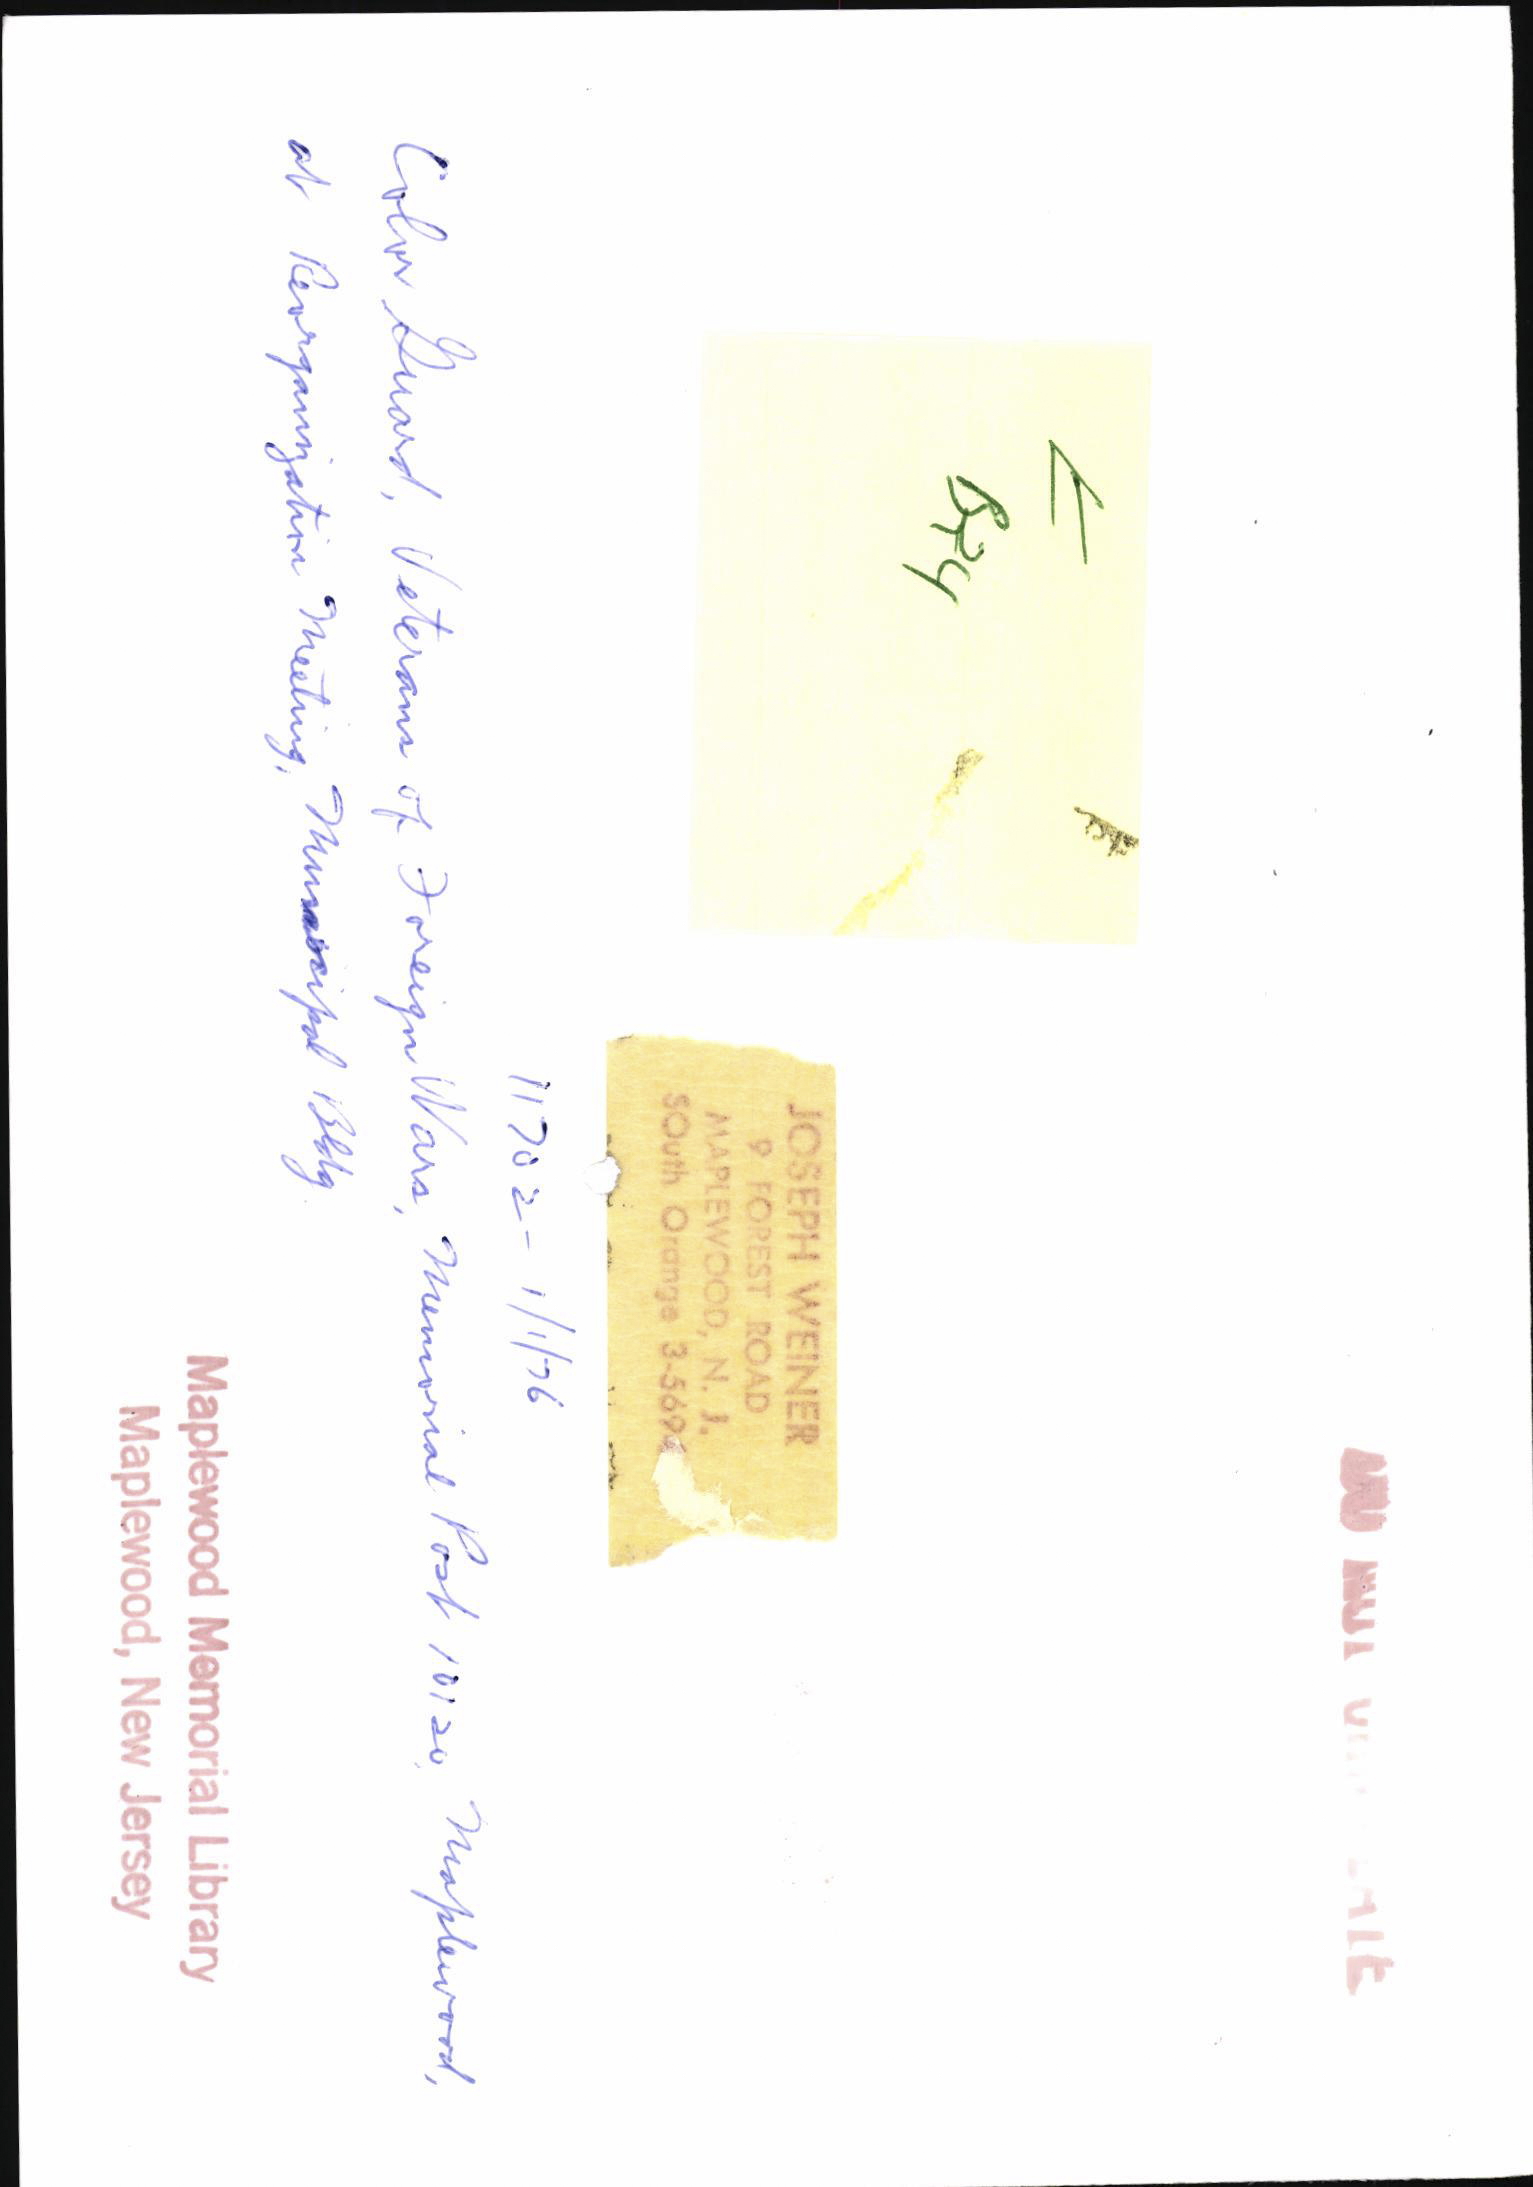 V
B-4
JOSEPH WEINER
9 FOREST ROAD
MAPLEWOOD, N. J.
SOuth Orange 3-569
11702 - 1/1/76
Color Guard, Veterans of Foreign Wars, Memorial Post 10120, Maplewood,
at Reorganization Meeting, Municipal Bldg.
Maplewood Memorial Library
Maplewood, New Jersey